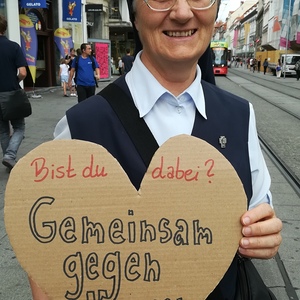 GELATO
Bist du dabei?
Gemeinsam
gegen